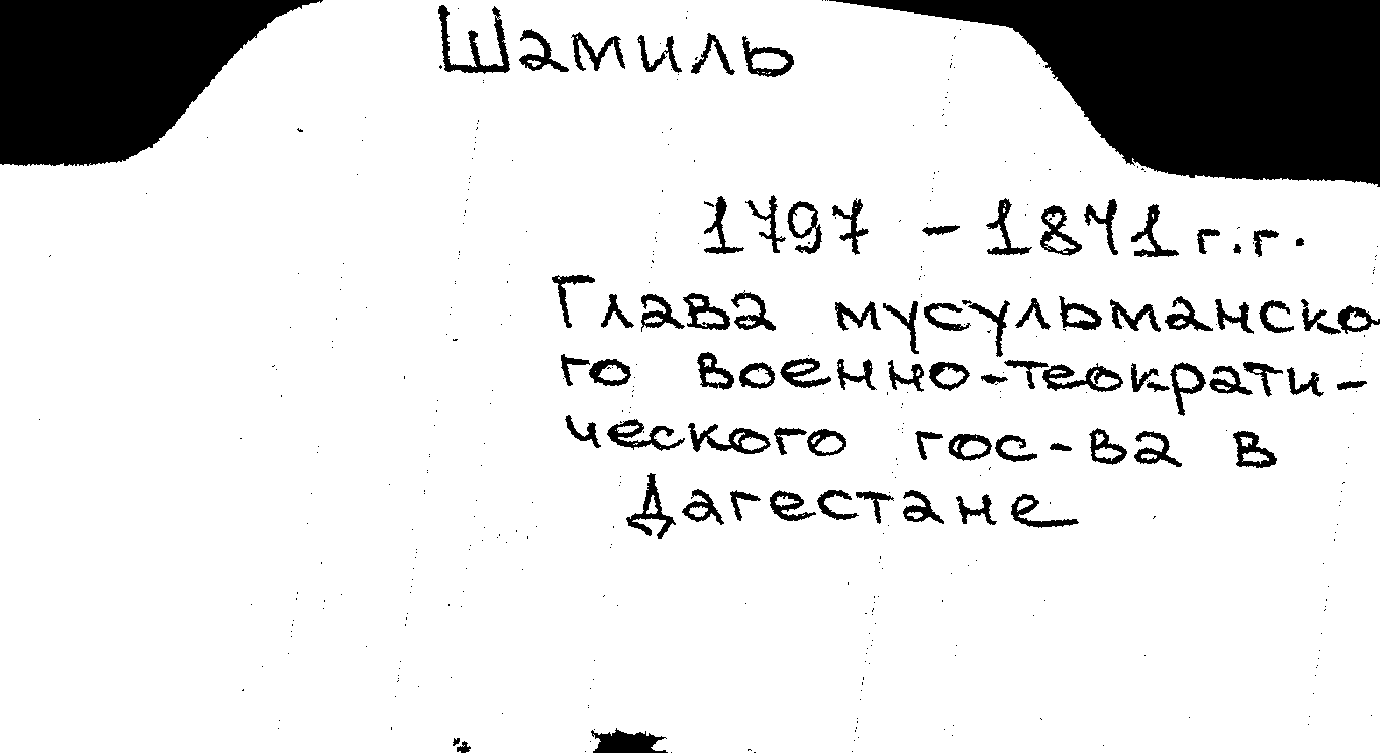 Шамиль
1797 - 1871 г.г.
Глава мусульманско
го военно-теократи-
ческого гос-ва в
Дагестане